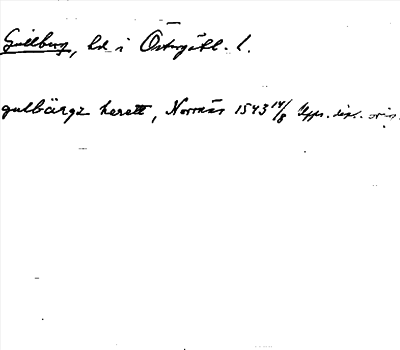 Gullberg, hd i Östergötl. l.
gulbärgz herett, Norrnäs 1543 14/8 Upps. dipl. orig.